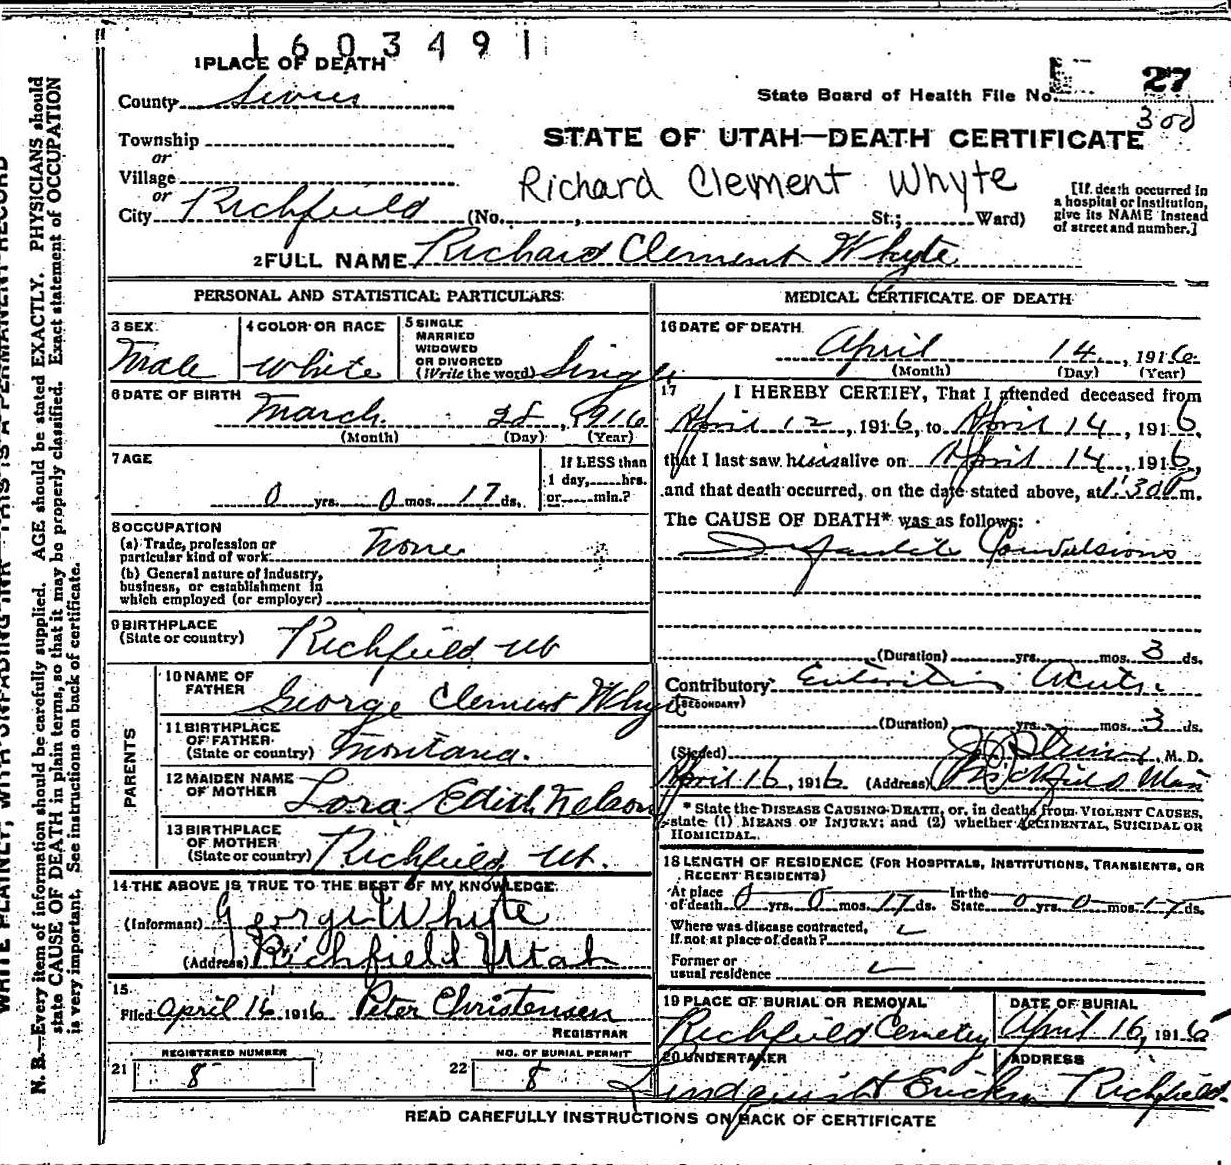 1603491
1 PLACE OF DEATH
County Sevier
State Board of Health File No. 27
300
Township
or
STATE OF UTAH—DEATH CERTIFICATE
Village
or
Richard Clement Whyte
City Richfield (No. , St.; Ward)
[If death occurred in
a hospital or institution,
give its NAME instead
of street and number.]
2 FULL NAME Richard Clement Whyte
PERSONAL AND STATISTICAL PARTICULARS
3 SEX
Male
4 COLOR OR RACE
White
5 SINGLE
MARRIED
WIDOWED
OR DIVORCED
(Write the word) Single
6 DATE OF BIRTH
March 28, 1916
(Month) (Day) (Year)
7 AGE
0 yrs. 0 mos. 17 ds.
If LESS than
1 day, hrs.
or min.?
8 OCCUPATION
(a) Trade, profession or
particular kind of work None
(b) General nature of industry,
business, or establishment in
which employed (or employer)
9 BIRTHPLACE
(State or country) Richfield Ut
PARENTS
10 NAME OF
FATHER George Clement Whyte
11 BIRTHPLACE
OF FATHER
(State or country) Montana.
12 MAIDEN NAME
OF MOTHER Lora Edith Nelson
13 BIRTHPLACE
OF MOTHER
(State or country) Richfield Ut.
14 THE ABOVE IS TRUE TO THE BEST OF MY KNOWLEDGE
(Informant) George Whyte
(Address) Richfield Utah
15
Filed April 16 1916 Peter Christensen
REGISTRAR
21 REGISTERED NUMBER
8
22 NO. OF BURIAL PERMIT
8
MEDICAL CERTIFICATE OF DEATH
16 DATE OF DEATH
April 14, 1916
(Month) (Day) (Year)
17 I HEREBY CERTIFY, That I attended deceased from
April 12, 1916, to April 14, 1916,
that I last saw him alive on April 14, 1916,
and that death occurred, on the date stated above, at 1:30 P.m.
The CAUSE OF DEATH* was as follows:
Infantile Convulsions
(Duration) yrs. mos. 3 ds.
Contributory Enteritis Acute
(SECONDARY)
(Duration) yrs. mos. 3 ds.
(Signed) , M. D.
April 16, 1916 (Address) Richfield
* State the DISEASE CAUSING DEATH, or, in deaths from VIOLENT CAUSES,
state (1) MEANS OF INJURY; and (2) whether ACCIDENTAL, SUICIDAL OR
HOMICIDAL.
18 LENGTH OF RESIDENCE (FOR HOSPITALS, INSTITUTIONS, TRANSIENTS, OR
RECENT RESIDENTS)
At place
of death 0 yrs. 0 mos. 17 ds. In the
State 0 yrs. 0 mos. 17 ds.
Where was disease contracted,
If not at place of death?
Former or
usual residence
19 PLACE OF BURIAL OR REMOVAL
Richfield Cemetery
DATE OF BURIAL
April 16, 1916
20 UNDERTAKER
ADDRESS
Richfield.
READ CAREFULLY INSTRUCTIONS ON BACK OF CERTIFICATE
WRITE PLAINLY, WITH UNFADING INK—THIS IS A PERMANENT RECORD
N. B.—Every item of information should be carefully supplied. AGE should be stated EXACTLY. PHYSICIANS should
state CAUSE OF DEATH in plain terms, so that it may be properly classified. Exact statement of OCCUPATION
is very important. See instructions on back of certificate.